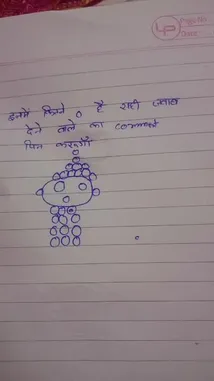 Page No.
Date
इनमें कितने 0 है सही जवाब
देने वाले का comment
पिन करूगाँ